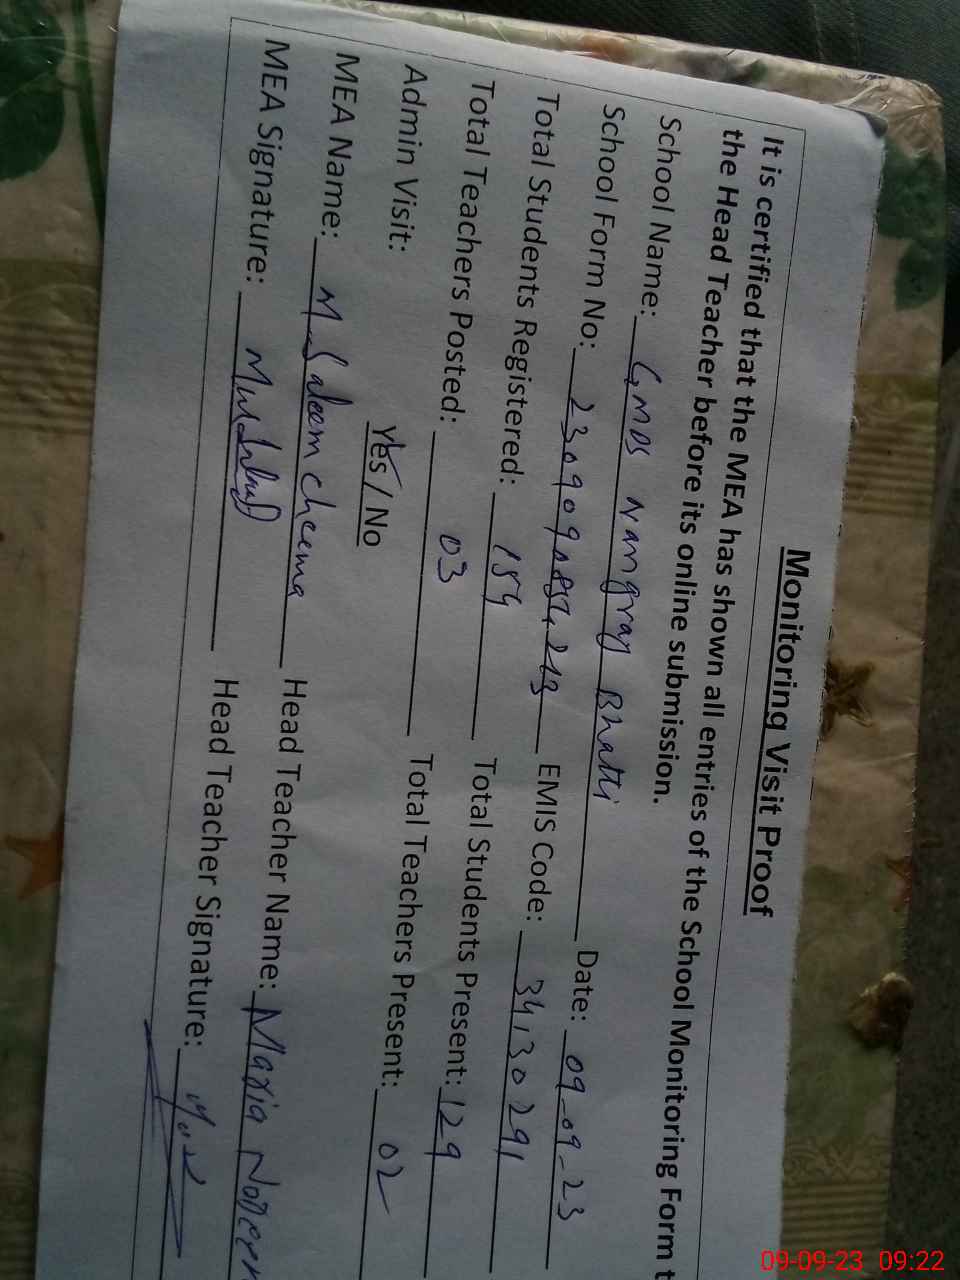 Monitoring Visit Proof
It is certified that the MEA has shown all entries of the School Monitoring Form t
the Head Teacher before its online submission.
School Name: GMPS Nangray Bhatti Date: 09-09-23
School Form No: 230909 213 EMIS Code: 34130291
Total Students Registered: 159 Total Students Present: 129
Total Teachers Posted: 03 Total Teachers Present: 02
Admin Visit: Yes / No
MEA Name: M Saleem cheema Head Teacher Name: Maria Noreen
MEA Signature: Head Teacher Signature:
09-09-23 09:22